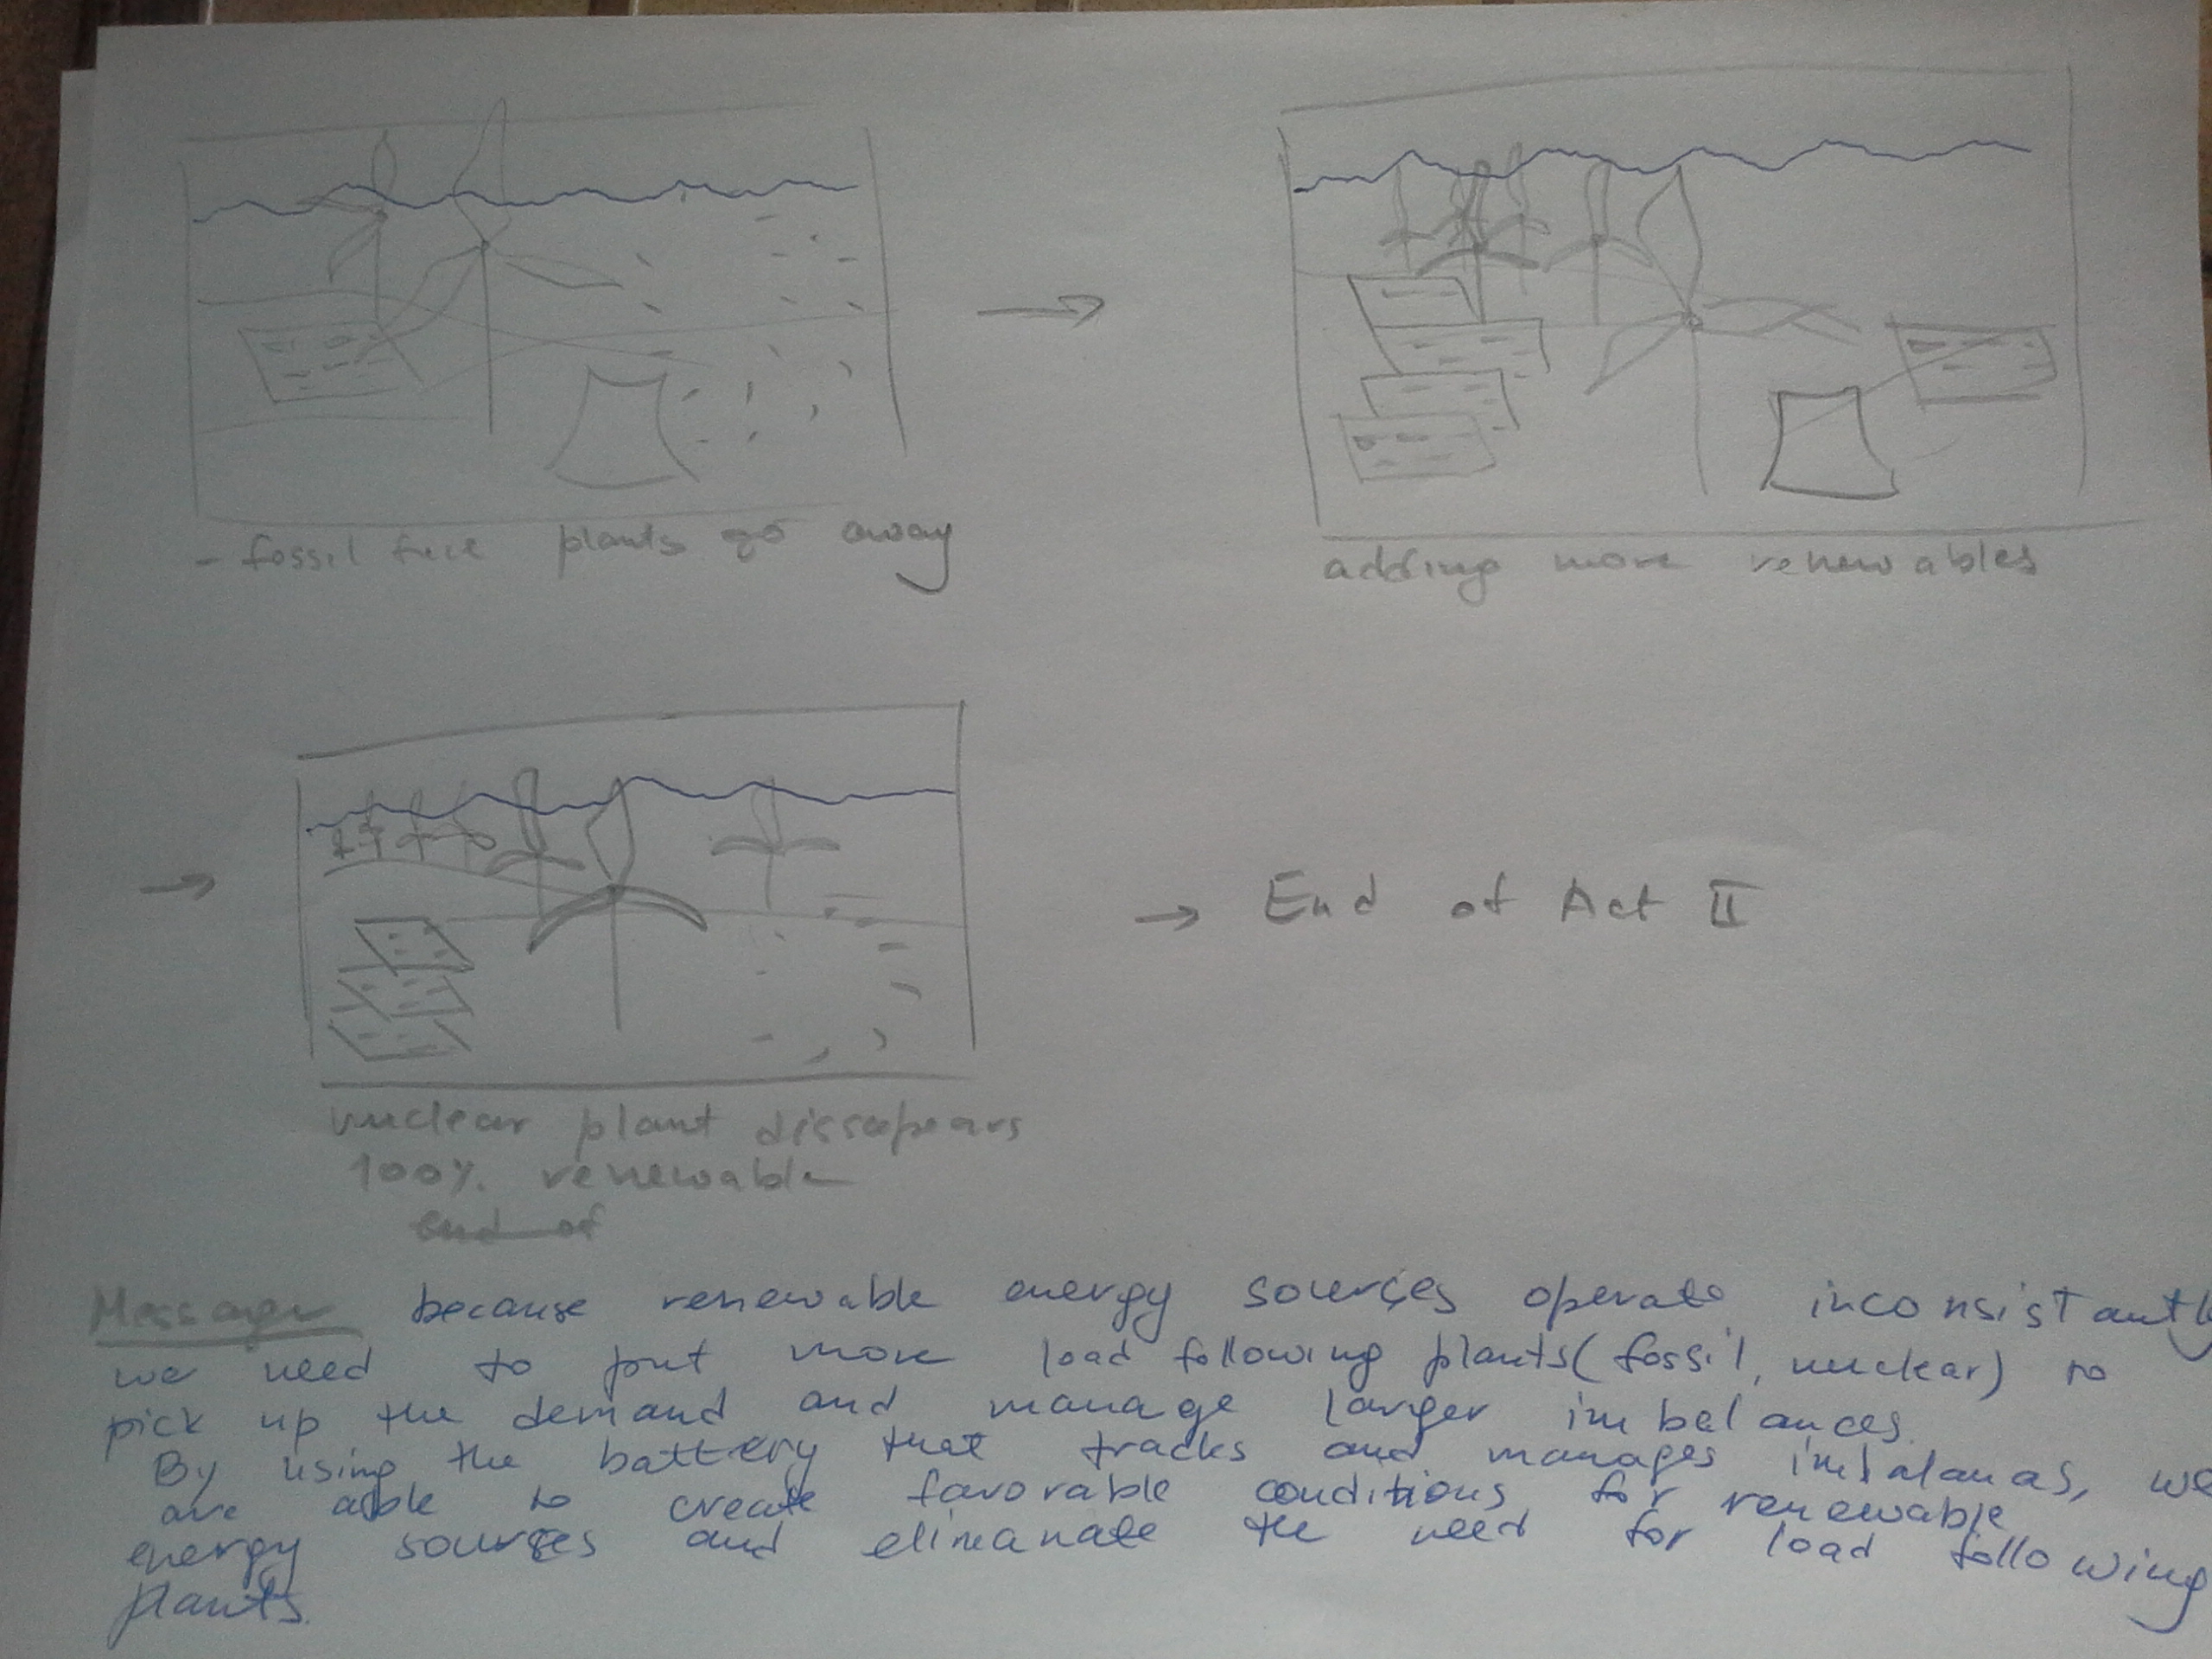 - fossil fuel plants go away
adding more renewables
nuclear plant dissapears
100% renewable
end of
→ End of Act II
Message because renewable energy sources operate inconsistantly
we need to put more load following plants (fossil, nuclear) to
pick up the demand and manage larger imbalances.
By using the battery that tracks and manages imbalances, we
are able to create favorable conditions for renewable
energy sources and elimanate the need for load following
plants.